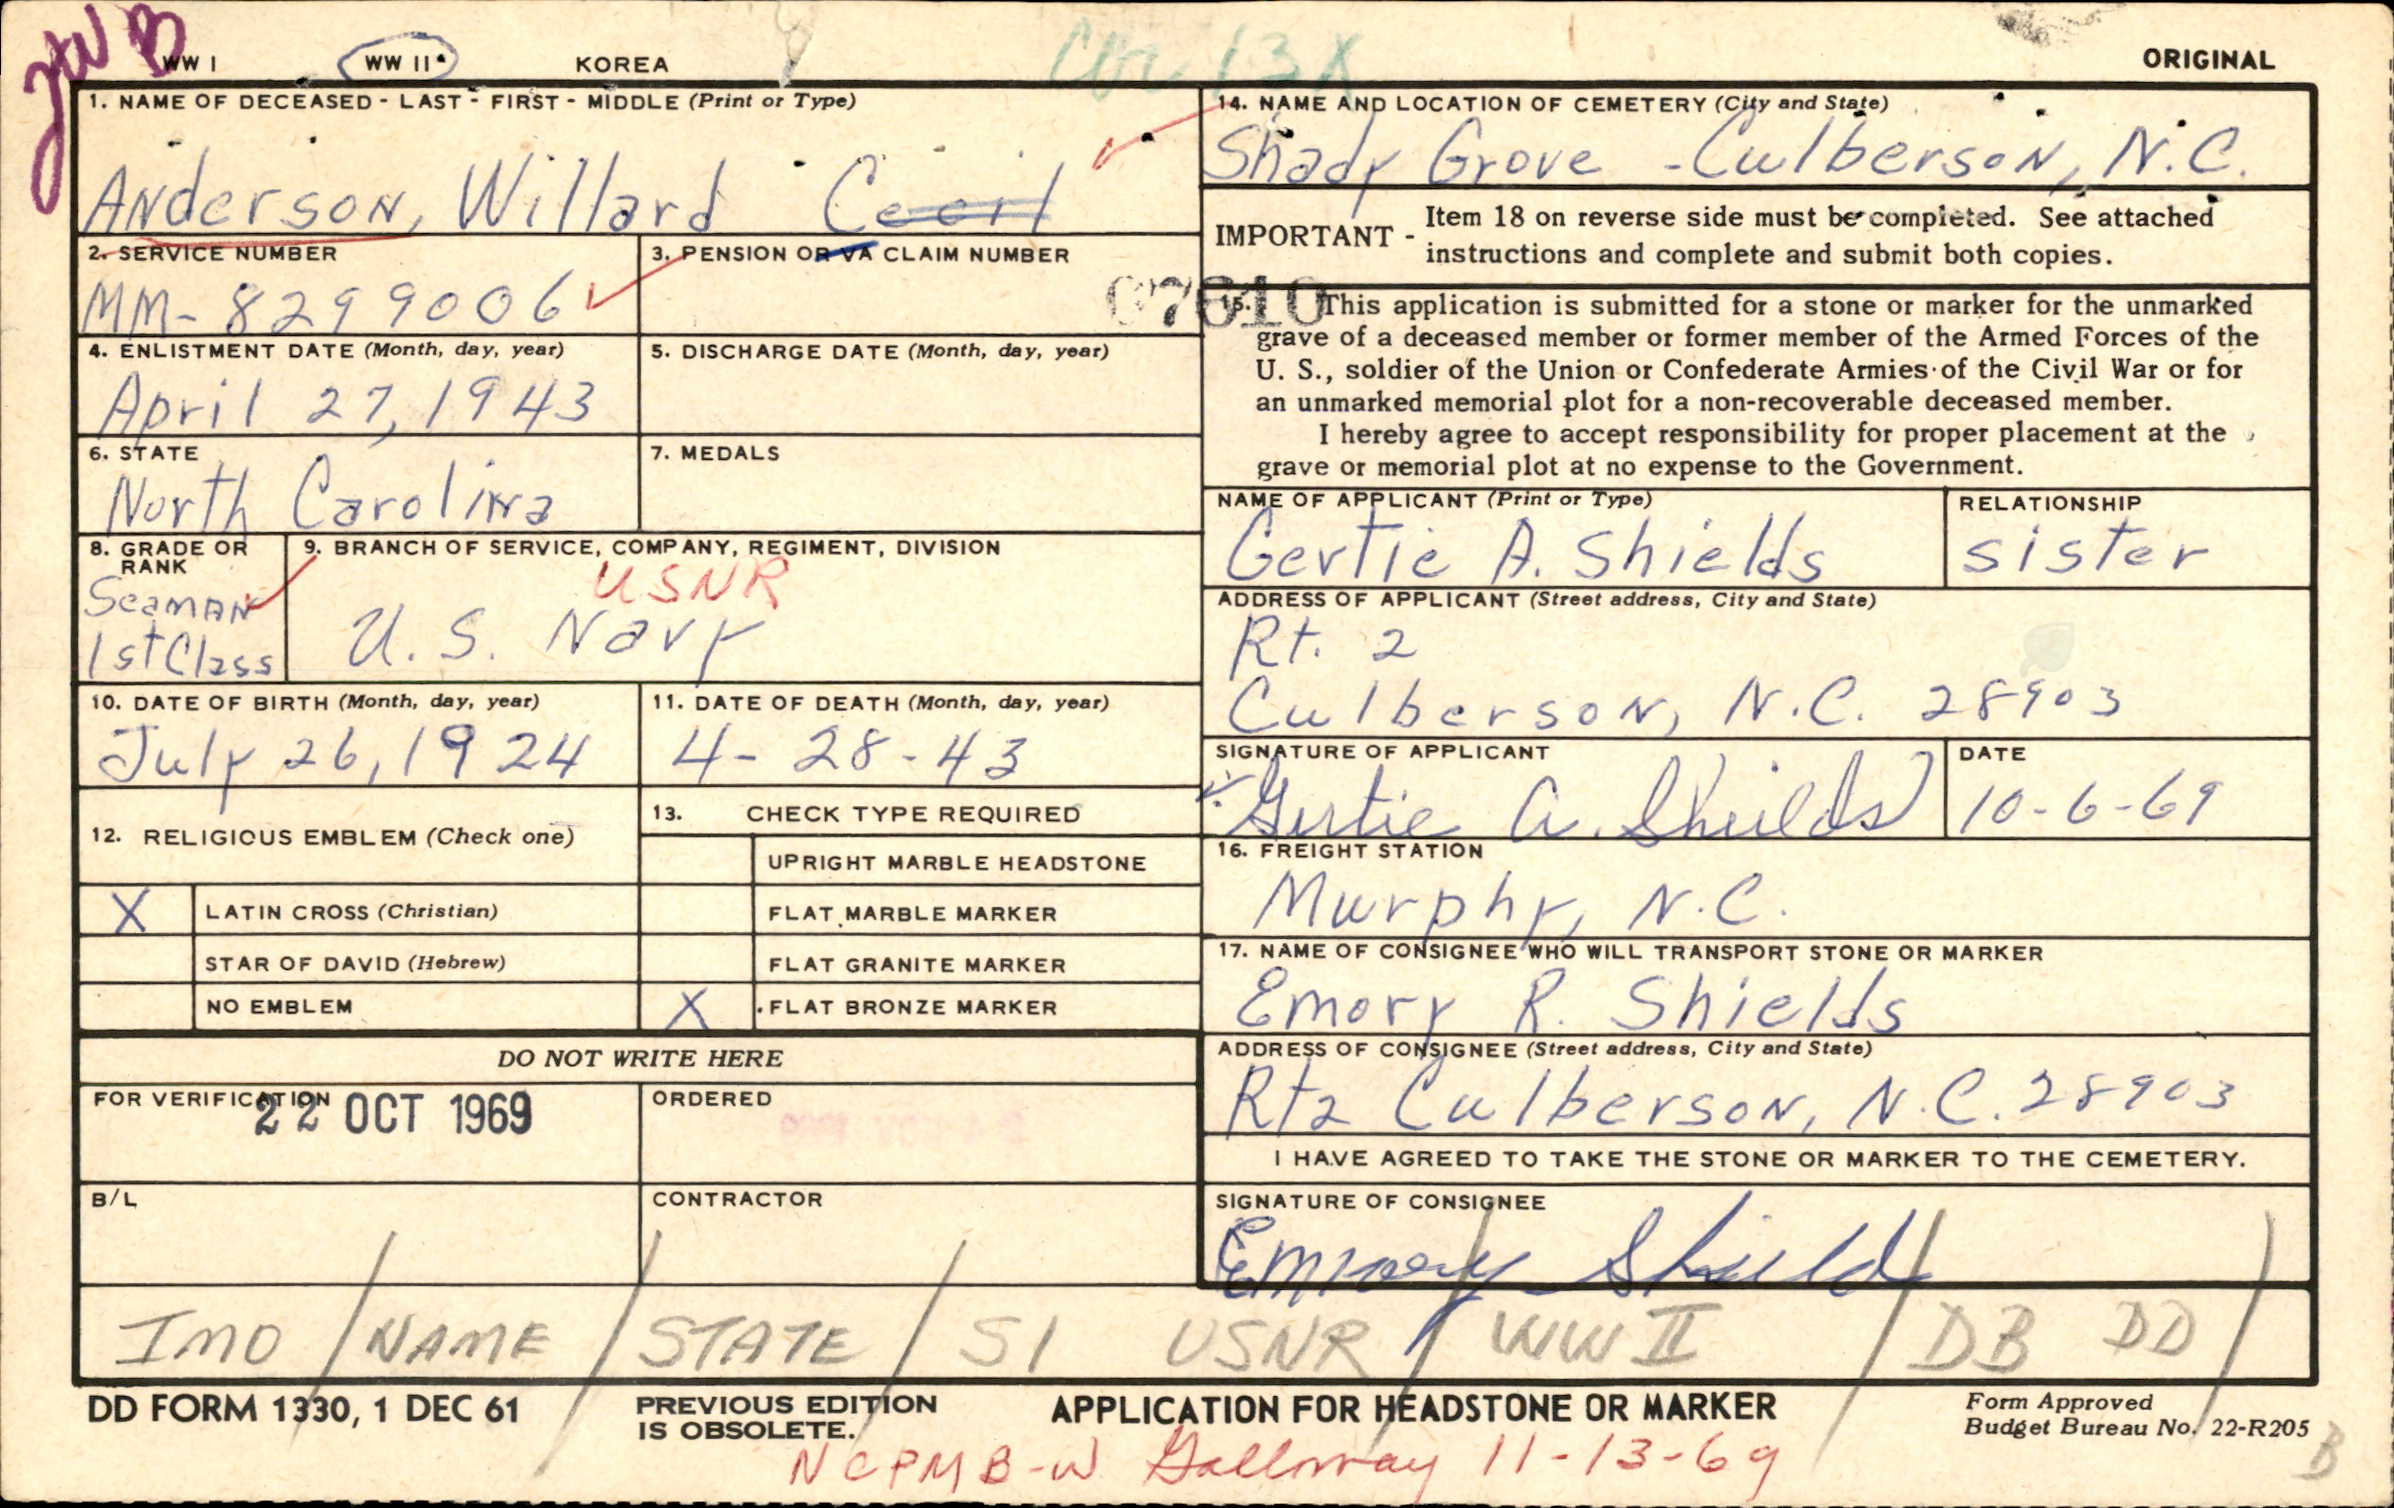 JWB
WW I WW II KOREA
ORIGINAL
1. NAME OF DECEASED - LAST - FIRST - MIDDLE (Print or Type)
Anderson, Willard Cecil
2. SERVICE NUMBER
MM- 8299006
3. PENSION OR VA CLAIM NUMBER
4. ENLISTMENT DATE (Month, day, year)
April 27, 1943
5. DISCHARGE DATE (Month, day, year)
6. STATE
North Carolina
7. MEDALS
8. GRADE OR
RANK
Seaman
1st Class
9. BRANCH OF SERVICE, COMPANY, REGIMENT, DIVISION
USNR
U. S. Navy
10. DATE OF BIRTH (Month, day, year)
July 26, 1924
11. DATE OF DEATH (Month, day, year)
4- 28-43
12. RELIGIOUS EMBLEM (Check one)
X LATIN CROSS (Christian)
STAR OF DAVID (Hebrew)
NO EMBLEM
13. CHECK TYPE REQUIRED
UPRIGHT MARBLE HEADSTONE
FLAT MARBLE MARKER
FLAT GRANITE MARKER
X FLAT BRONZE MARKER
DO NOT WRITE HERE
FOR VERIFICATION
22 OCT 1969
ORDERED
B/L
CONTRACTOR
14. NAME AND LOCATION OF CEMETERY (City and State)
Shady Grove - Culberson, N.C.
IMPORTANT - Item 18 on reverse side must be completed. See attached
instructions and complete and submit both copies.
07610
15. This application is submitted for a stone or marker for the unmarked
grave of a deceased member or former member of the Armed Forces of the
U. S., soldier of the Union or Confederate Armies of the Civil War or for
an unmarked memorial plot for a non-recoverable deceased member.
I hereby agree to accept responsibility for proper placement at the
grave or memorial plot at no expense to the Government.
NAME OF APPLICANT (Print or Type)
Gertie A. Shields
RELATIONSHIP
sister
ADDRESS OF APPLICANT (Street address, City and State)
Rt. 2
Culberson, N.C. 28903
SIGNATURE OF APPLICANT
Gertie A. Shields
DATE
10-6-69
16. FREIGHT STATION
Murphy, N.C.
17. NAME OF CONSIGNEE WHO WILL TRANSPORT STONE OR MARKER
Emory R. Shields
ADDRESS OF CONSIGNEE (Street address, City and State)
Rt2 Culberson, N.C. 28903
I HAVE AGREED TO TAKE THE STONE OR MARKER TO THE CEMETERY.
SIGNATURE OF CONSIGNEE
Emmory Shield
IMO / NAME / STATE / S1 USNR / WW II / DB DD /
DD FORM 1330, 1 DEC 61
PREVIOUS EDITION
IS OBSOLETE.
APPLICATION FOR HEADSTONE OR MARKER
Form Approved
Budget Bureau No. 22-R205
NCPMB-W Galloway 11-13-69
B